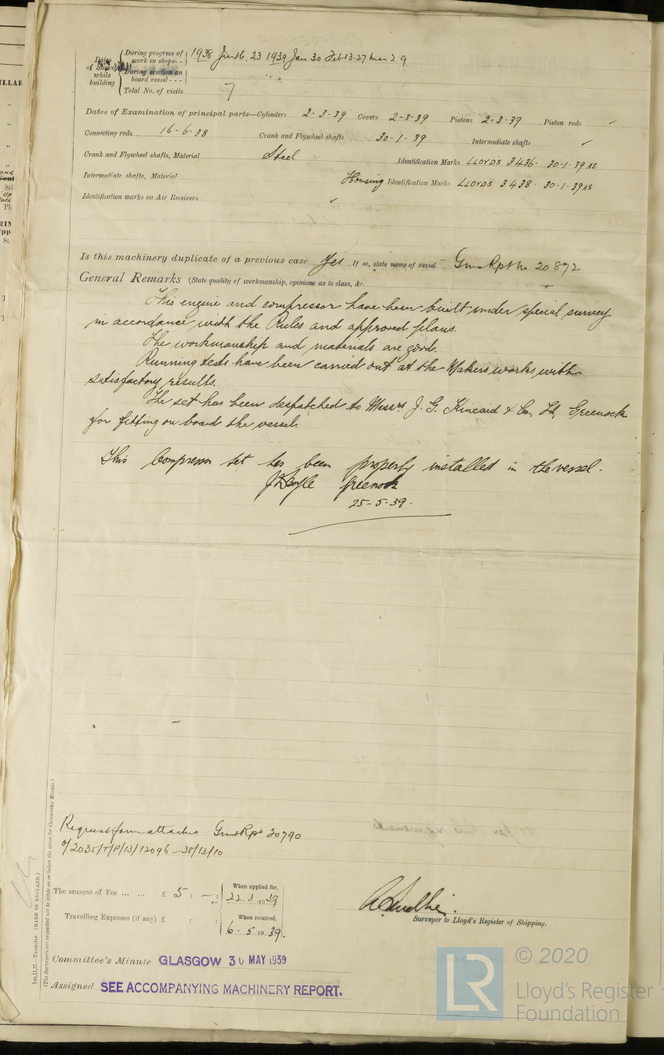 During progress of work in shops - - 1938 June 16, 23 1939 Jan 30 Feb 13.27 Mar 2 9
Dates of Survey while building
During erection on board vessel - - -
Total No. of visits 7
Dates of Examination of principal parts—Cylinders 2-3-39 Covers 2-3-39 Pistons 2-3-39 Piston rods ✓
Connecting rods 16-6-38 Crank and Flywheel shafts 30-1-39 Intermediate shafts ✓
Crank and Flywheel shafts, Material Steel Identification Marks LLOYDS 3436 30-1-39 AS
Intermediate shafts, Material Housing Identification Marks LLOYDS 3438 30-1-39 AS
Identification marks on Air Receivers ✓
Is this machinery duplicate of a previous case Yes If so, state name of vessel Gms Rpt No 20892
General Remarks (State quality of workmanship, opinions as to class, &c.
This engine and compressor have been built under special survey
in accordance with the Rules and approved plans.
The workmanship and materials are good.
Running tests have been carried out at the Makers works with
satisfactory results.
The set has been despatched to Messrs J. G. Kincaid & Co. Ld, Greenock
for fitting on board the vessel.
This Compressor set has been properly installed in the vessel.
Greenock
25-5-39.
Request form attached Gms Rpt 20790
The amount of Fee ... ... £ 5 : - : When applied for, 22.3.1939
Travelling Expenses (if any) £ : : When received, 6.5.1939.
Surveyor to Lloyd's Register of Shipping.
Committee's Minute GLASGOW 30 MAY 1939
Assigned SEE ACCOMPANYING MACHINERY REPORT.
(MADE IN ENGLAND.)
(The Surveyors are requested not to write on or below the space for Committee's Minute.)
LR
© 2020
Lloyd's Register
Foundation